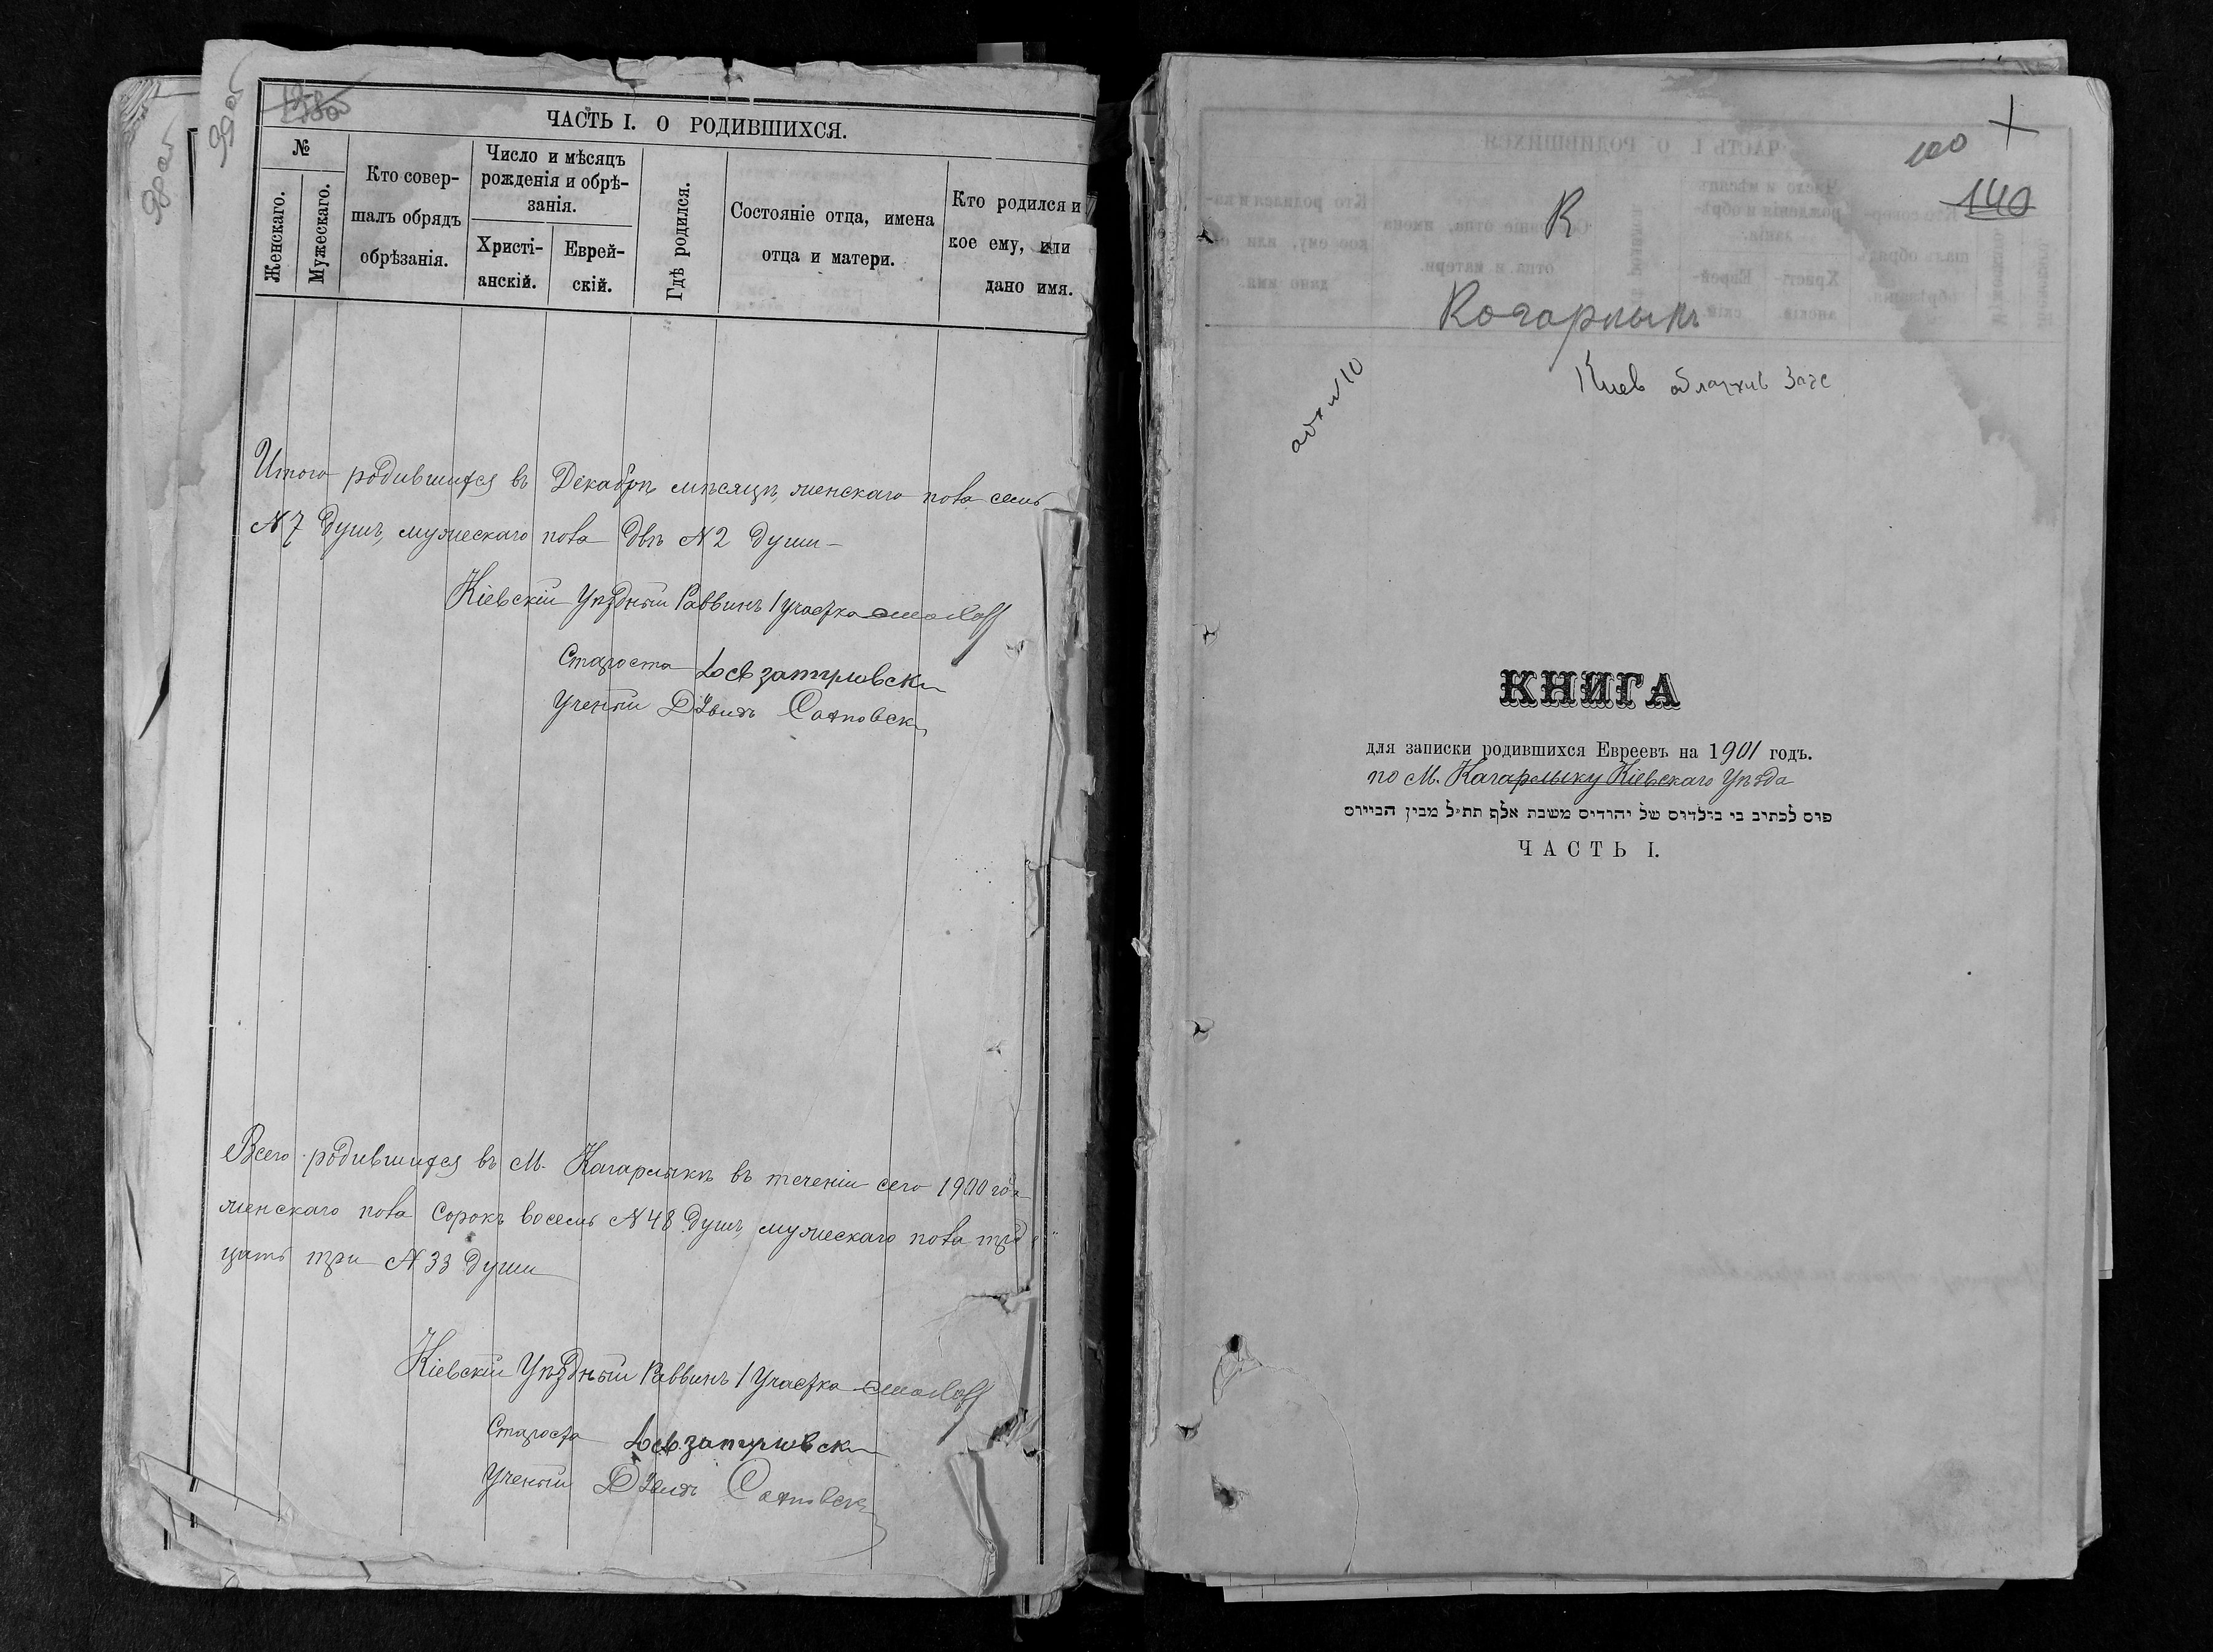 99об
98об
ЧАСТЬ I. О РОДИВШИХСЯ.
№
Женскаго.
Мужескаго.
Кто совер-
шалъ обрядъ
обрѣзанія.
Число и мѣсяцъ
рожденія и обрѣ-
занія.
Христі-
анскій.
Еврей-
скій.
Гдѣ родился.
Состояніе отца, имена
отца и матери.
Кто родился и
кое ему, или
дано имя.
Итого родившихся въ Декабрѣ мѣсяцѣ, женскаго пола семь
№ 7 душъ, мужескаго пола двѣ № 2 души
Кіевскій Уѣздный Раввинъ 1 участка
Староста
Ученый Давидъ
Всего родившихся въ М. Кагарлыкѣ въ теченіи сего 1900 года
женскаго пола сорокъ восемь № 48 душъ, мужескаго пола трид
цать три № 33 души
Кіевскій Уѣздный Раввинъ 1 Участка
Староста
Ученый Давидъ
100
140
К
Кагарлыкъ
Киев Загс
КНИГА
для записки родившихся Евреевъ на 1901 годъ.
по М. Кагарлыку Кіевскаго Уѣзда
ЧАСТЬ I.